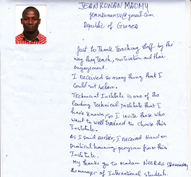 JEAN KONAN MAOMY
Republic of Guinea
Just to thank teaching staff by the
way they teach, motivation and their
engagement.
I received so many thing that I
could not believe.
Technical Institute is one of the
leading Technical institute that I
have known, so I invite those who
want to well trained to choose this
Institute.
As I said earlier, I received hand on
practical training program from this
Institute.
My thanks go to madam
manager of International students.